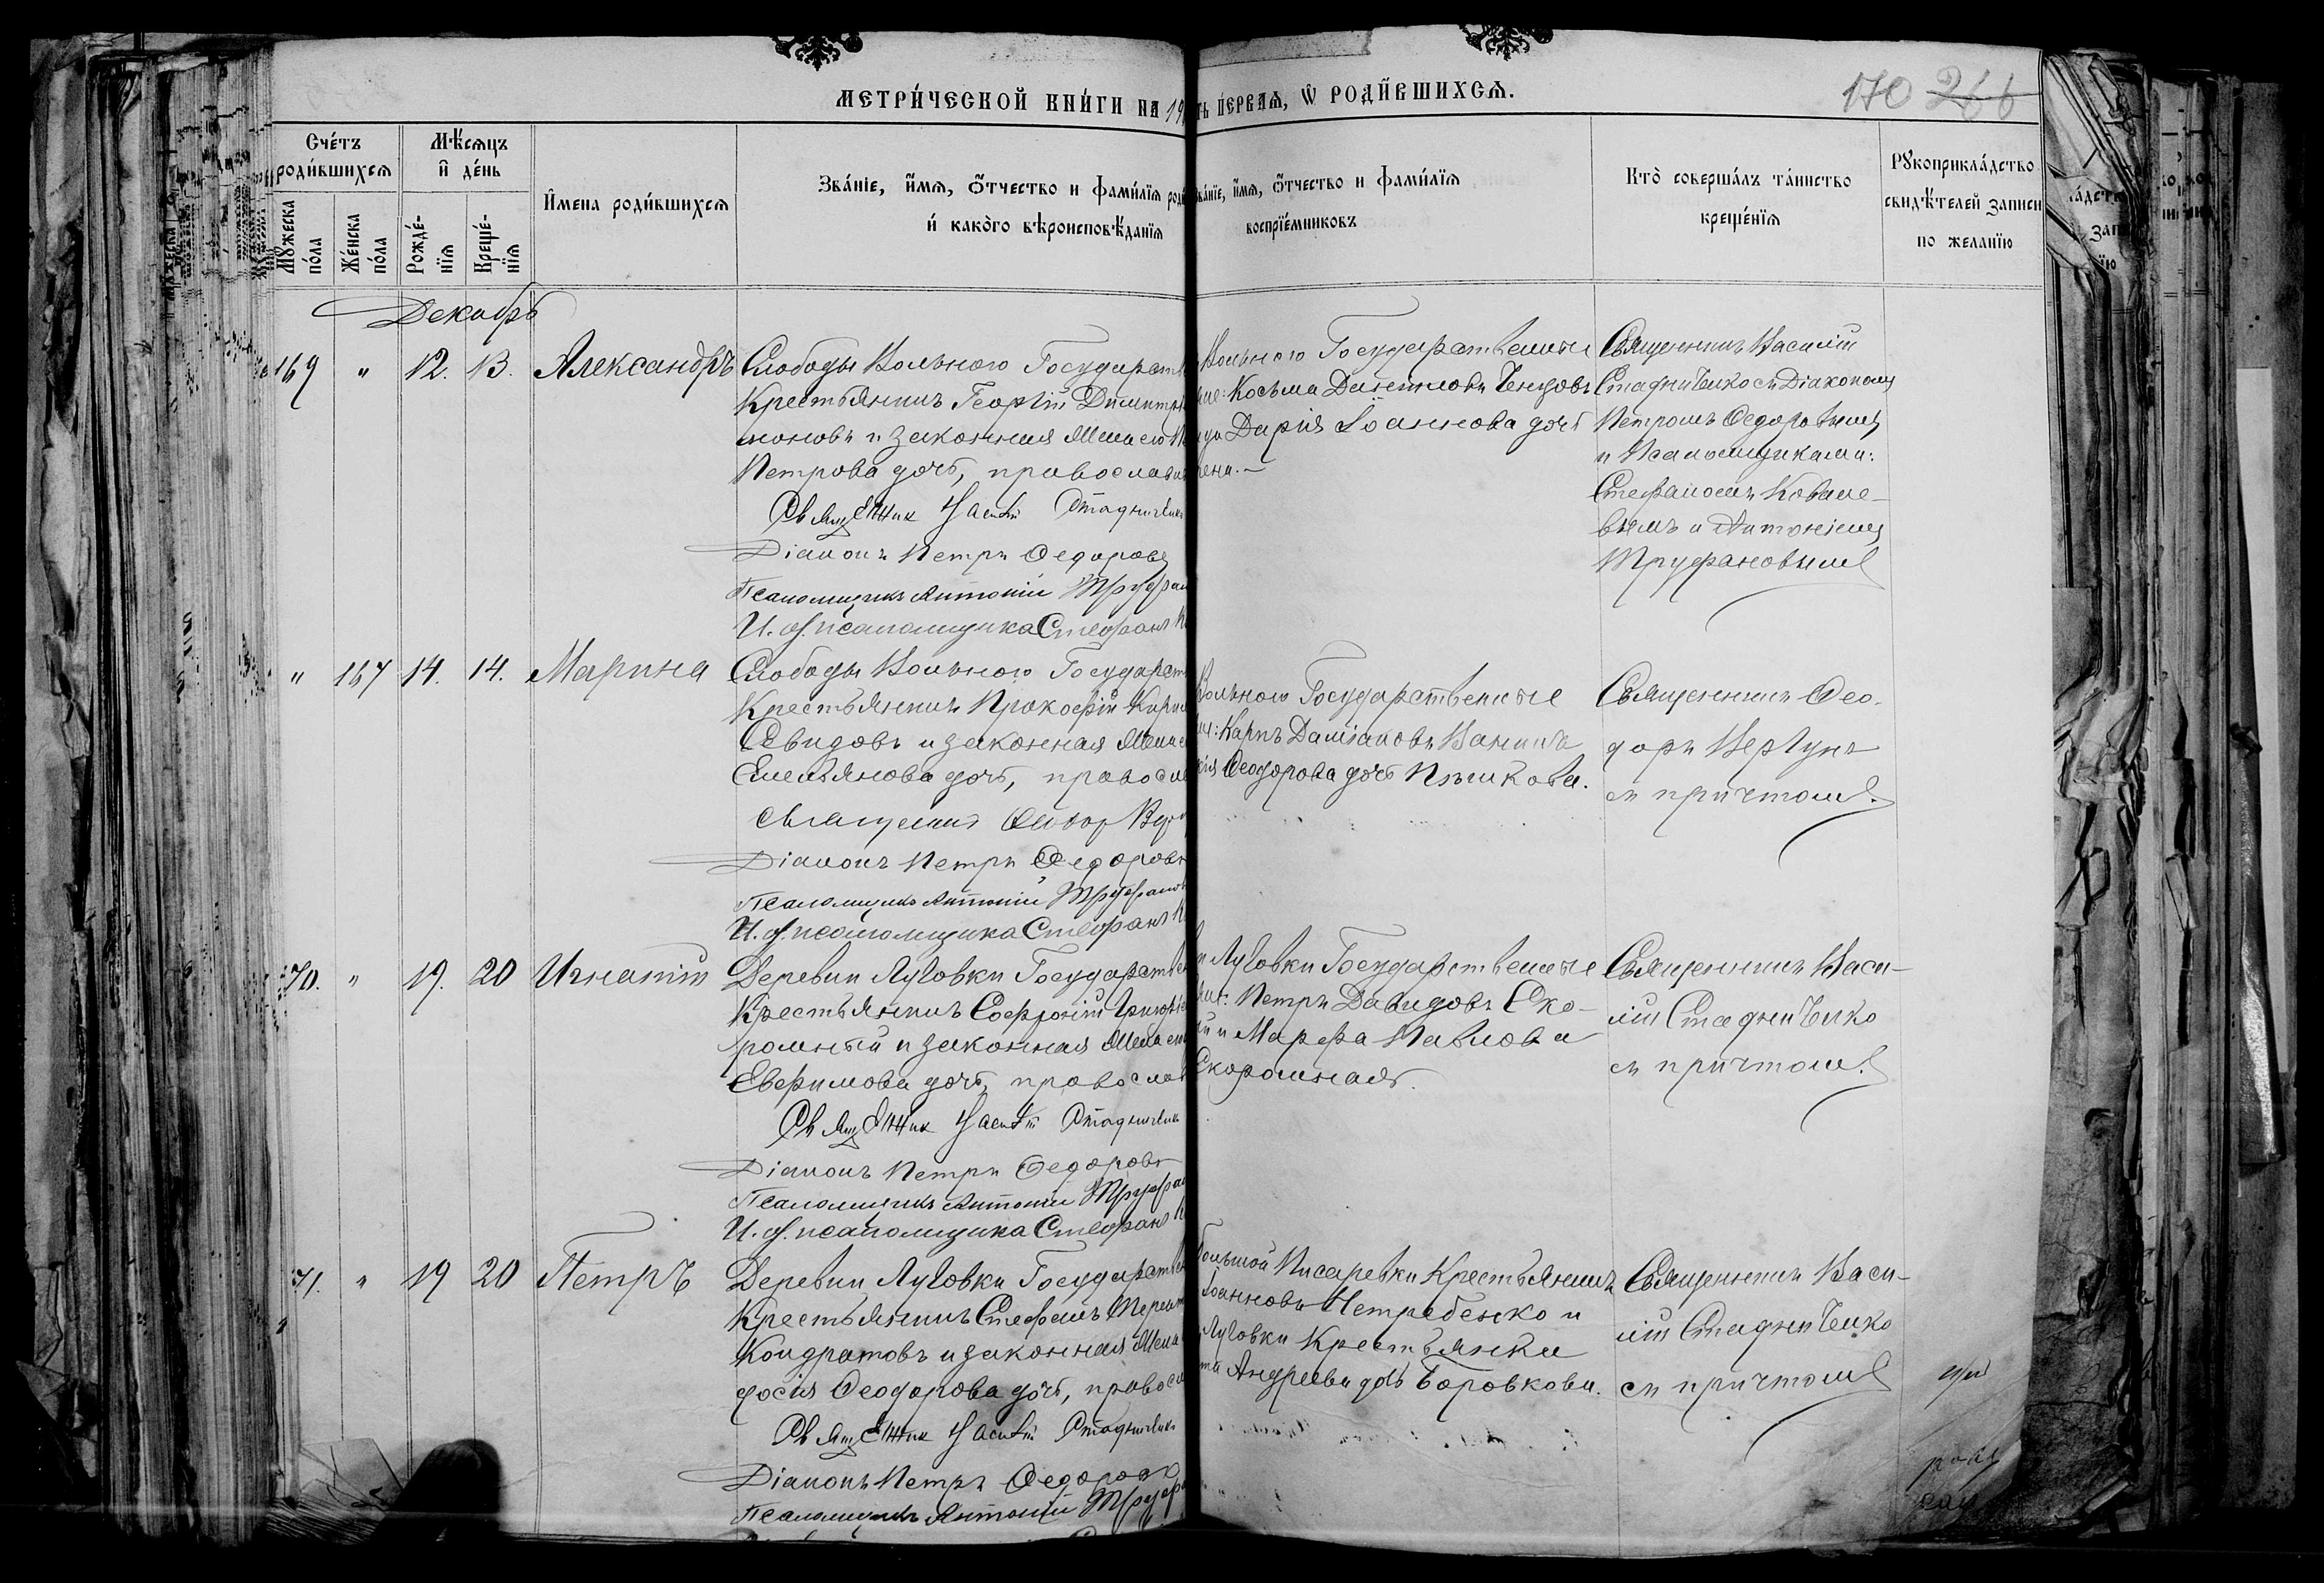 МЕТРИ́ЧЕСКОЙ КНИ́ГИ НА 19
ТЬ ПЕ́РВАЯ, Ѡ РОДИ́ВШИХСЯ.
170 266
Сче́тъ
роди́вшихся
Мѣ́сяцъ
и҆ де́нь
Мꙋ́жеска по́ла
Же́нска по́ла
Рожде́-нїя
Креще́-нїя
И҆мена роди́вшихся
Зва́нїе, и҆́мя, ѻ҆́тчество и фами́лїя роди
и҆ како́го вѣроисповѣ́данїя
Зва́нїе, и҆́мя, ѻ҆́тчество и фами́лїя
воспрїе́мниковъ
Кто̀ соверша́лъ та́инство
креще́нїя
Рꙋкоприкла́дство
свидѣ́телей записи
по желанїю
Декабрь
169 " 12. 13. Александръ
Слободы Вольного Государств
Крестьянинъ Георгій Димитрі
моновъ и законная жена его
Петрова дочь, православн
Священник Василий Стадниченк
Діаконъ Петръ Ѳедоровъ
Псаломщикъ Антоній Труфан
И. д. псаломщика Стефанъ К
Вольного Государственные
не: Косьма Даниловъ Ченцовъ
Дарія Іоаннова дочь
Священникъ Василій
Стадниченко съ Діакономъ
Петромъ Ѳедоровымъ
и Псаломщиками:
Стефаномъ Ковале-
вымъ и Антоніемъ
Труфановымъ
" 167 14. 14. Марина
Слободы Вольного Государств
Крестьянинъ Прокофій Кири
Севидовъ и законная жена е
Емельянова дочь, правосла
Священникъ Ѳеодор Вер
Діаконъ Петръ Ѳедоровъ
Псаломщикъ Антоній Труфанов
И. д. псаломщика Стефанъ К
Вольного Государственные
не: Карпъ Даміановъ Ванинъ
Ѳеодорова дочь Пѣшкова.
Священникъ Ѳео-
доръ Вергунъ
съ причтомъ.
170. " 19. 20 Игнатій
Деревни Луговки Государстве
Крестьянинъ Софроній Григорье
ромный и законная жена его
Евфимова дочь, православ
Священник Василий Стадниченк
Діаконъ Петръ Ѳедоровъ
Псаломщикъ Антоній Труфан
И. д. псаломщика Стефанъ К
и Луговки Государственные
не: Петръ Давидовъ Ско-
и Марфа Павлова
Скоромная.
Священникъ Васи-
лій Стадниченко
съ причтомъ.
71. " 19 20 Петръ
Деревни Луговки Государстве
Крестьянинъ Стефанъ
Кондратовъ и законная жена
досія Ѳеодорова дочь, правосл
Священник Василий Стадниченк
Діаконъ Петръ Ѳедоровъ
Псаломщикъ Антоній Труфа
Большой Писаревки Крестьянинъ
Іоанновъ Нетребенко и
Луговки Крестьянка
Андреева дочь Боровкова.
Священникъ Васи-
лій Стадниченко
съ причтомъ